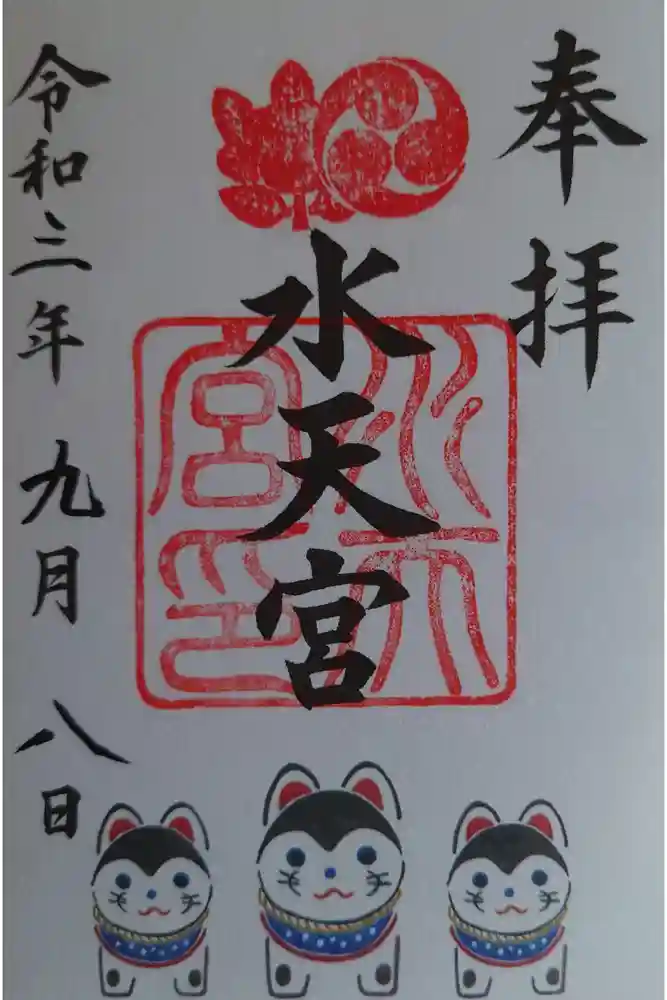 奉拝
水天宮
水天宮印
令和三年 九月 八日